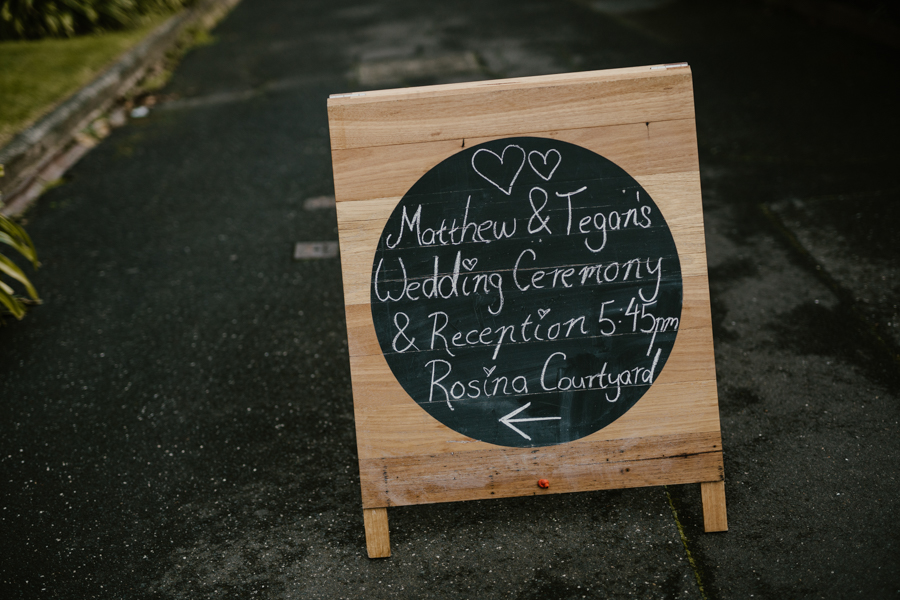 Matthew & Tegan's
Wedding Ceremony
& Reception 5:45pm
Rosina Courtyard